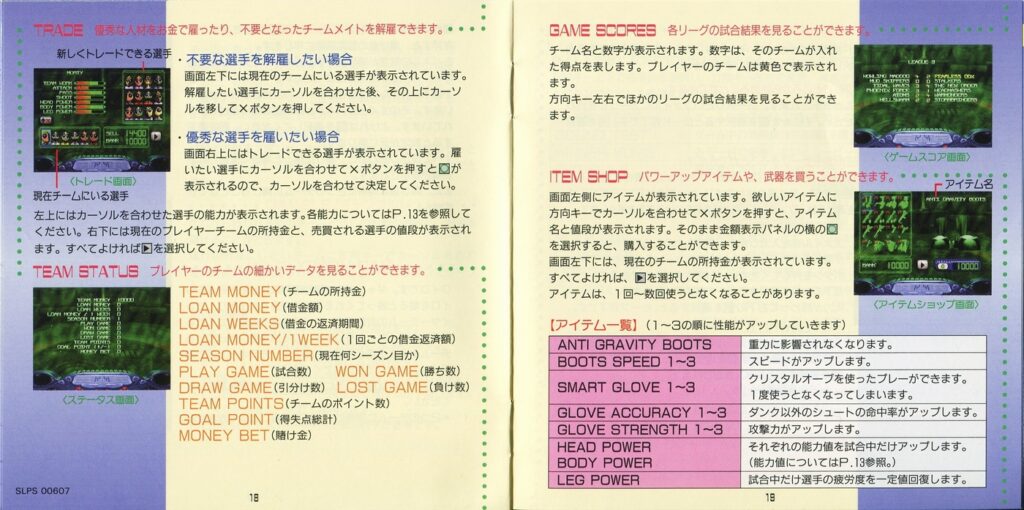 TRADE 優秀な人材をお金で雇ったり、不要となったチームメイトを解雇できます。
新しくトレードできる選手
MONTY
TEAM WORK
ATTACK
PASS
SHOOT
HEAD POWER
BODY POWER
LEG POWER
SELL 14400
BANK 10000
〈トレード画面〉
現在チームにいる選手
・不要な選手を解雇したい場合
画面左下には現在のチームにいる選手が表示されています。
解雇したい選手にカーソルを合わせた後、その上にカーソ
ルを移して×ボタンを押してください。
・優秀な選手を雇いたい場合
画面右上にはトレードできる選手が表示されています。雇
いたい選手にカーソルを合わせて×ボタンを押すと
が
表示されるので、カーソルを合わせて決定してください。
左上にはカーソルを合わせた選手の能力が表示されます。各能力についてはP.13を参照して
ください。右下には現在のプレイヤーチームの所持金と、売買される選手の値段が表示され
ます。すべてよければ▶を選択してください。
TEAM STATUS プレイヤーのチームの細かいデータを見ることができます。
TEAM MONEY 10000
LOAN MONEY 0
LOAN WEEKS 0
LOAN MONEY / 1 WEEK 0
SEASON NUMBER 1
PLAY GAME 0
WON GAME 0
DRAW GAME 0
LOST GAME 0
TEAM POINTS 0
GOAL POINT (+/-) 0
MONEY BET 0
〈ステータス画面〉
TEAM MONEY(チームの所持金)
LOAN MONEY(借金額)
LOAN WEEKS(借金の返済期間)
LOAN MONEY/1WEEK(1回ごとの借金返済額)
SEASON NUMBER(現在何シーズン目か)
PLAY GAME(試合数) WON GAME(勝ち数)
DRAW GAME(引分け数) LOST GAME(負け数)
TEAM POINTS(チームのポイント数)
GOAL POINT(得失点総計)
MONEY BET(賭け金)
SLPS 00607
18
GAME SCORES 各リーグの試合結果を見ることができます。
チーム名と数字が表示されます。数字は、そのチームが入れ
た得点を表します。プレイヤーのチームは黄色で表示されま
す。
方向キー左右でほかのリーグの試合結果を見ることができま
す。
LEAGUE 3
HOWLING MADDOG 1 2 FEARLESS DDX
MUD SKIPPERS 0 0 STALKERS
TIDAL WAVES 3 1 THE NEW ORDER
PHOENIX FORCE 3 1 HEADHASHERS
HELLSWARM
〈ゲームスコア画面〉
ITEM SHOP パワーアップアイテムや、武器を買うことができます。
アイテム名
画面左側にアイテムが表示されます。欲しいアイテムに
方向キーでカーソルを合わせて×ボタンを押すと、アイテム
名と値段が表示されます。そのまま金額表示パネルの横の
を選択すると、購入することができます。
画面左下には、現在のチームの所持金が表示されています。
すべてよければ、▶を選択してください。
アイテムは、1回～数回使うとなくなることがあります。
ANTI GRAVITY BOOTS
BANK 10000
10000
〈アイテムショップ画面〉
【アイテム一覧】(1～3の順に性能がアップしていきます)
ANTI GRAVITY BOOTS 重力に影響されなくなります。
BOOTS SPEED 1～3 スピードがアップします。
SMART GLOVE 1～3 クリスタルオーブを使ったプレーができます。
1度使うとなくなってしまいます。
GLOVE ACCURACY 1～3 ダンク以外のシュートの命中率がアップします。
GLOVE STRENGTH 1～3 攻撃力がアップします。
HEAD POWER それぞれの能力値を試合中だけアップします。
BODY POWER (能力値についてはP.13参照。)
LEG POWER 試合中だけ選手の疲労度を一定値回復します。
19